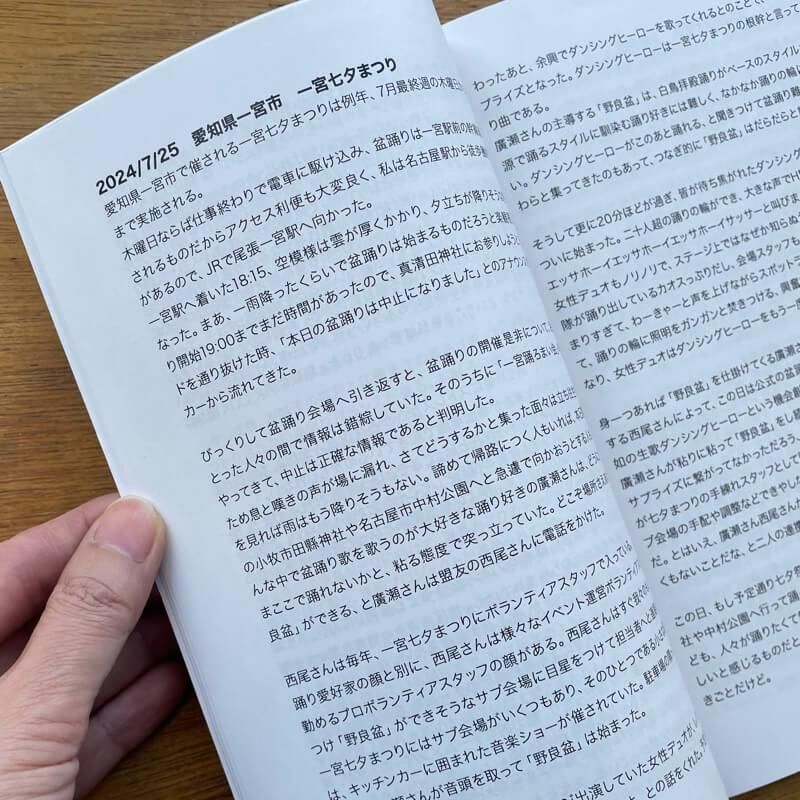 2024/7/25　愛知県一宮市　一宮七夕まつり
愛知県一宮市で催される一宮七夕まつりは例年、7月最終週の木曜日
まで実施される。
木曜日ならば仕事終わりで電車に駆け込み、盆踊りは一宮駅前の
されるものだからアクセス利便も大変良く、私は名古屋駅から徒歩
があるので、JRで尾張一宮駅へ向かった。
一宮駅へ着いた18:15、空模様は雲が厚くかかり、夕立ちが降りそう
なった。まあ、一雨降ったくらいで盆踊りは始まるものだろうと
り開始19:00までまだ時間があったので、真清田神社にお参りしよう
ドを通り抜けた時、「本日の盆踊りは中止になりました」とのアナウン
カーから流れてきた。
びっくりして盆踊り会場へ引き返すと、盆踊りの開催是非について
とった人々の間で情報は錯綜していた。そのうちに「一宮踊ろまい会
やってきて、中止は正確な情報であると判明した。
ため息と嘆きの声が場に漏れ、さてどうするかと集った面々は立ち
を見れば雨はもう降りそうもない。諦めて帰路につく人もいれば、
の小牧市田縣神社や名古屋市中村公園へと急遽で向かおうとする人
んな中で盆踊り歌を歌うのが大好きな踊り好きの廣瀬さんは、どう
まここで踊れないかと、粘る態度で突っ立っていた。どこそ場所さえ
良盆」ができる、と廣瀬さんは盟友の西尾さんに電話をかけた。
西尾さんは毎年、一宮七夕まつりにボランティアスタッフで入っている
踊り愛好家の顔と別に、西尾さんは様々なイベント運営ボランティ
勤めるプロボランティアスタッフの顔がある。西尾さんはすぐ我々の
つけ「野良盆」ができそうなサブ会場に目星をつけて担当者へと
一宮七夕まつりにはサブ会場がいくつもあり、そのひとつである
は、キッチンカーに囲まれた音楽ショーが催されていた。駐車場の
瀬さんが音頭を取って「野良盆」は始まった。
が出演していた女性デュオが
との話をくれた。
わったあと、余興でダンシングヒーローを歌ってくれるとのことで、
プライズとなった。ダンシングヒーローは一宮七夕まつりの根幹と言って
り曲である。
廣瀬さんの主導する「野良盆」は、白鳥拝殿踊りがベースのスタイル
源で踊るスタイルに馴染む踊り好きには難しく、なかなか踊りの輪に
い。ダンシングヒーローがこのあと踊れる、と聞きつけて盆踊り難
わらと集ってきたのもあって、つなぎ的に「野良盆」はだらだらと
そうして更に20分ほどが過ぎ、皆が待ち焦がれたダンシング
ついに始まった。二十人超の踊りの輪ができ、大きな声でH
エッサホーイエッサホーイエッサホーイサッサーと叫びま
女性デュオもノリノリで、ステージ上ではなぜか知らぬ
隊が踊り出しているカオスっぷりだし、会場スタッフも
まりすぎて、わーきゃーと声を上げながらスポット
て、踊りの輪に照明をガンガンと焚きつける。興奮
なり、女性デュオはダンシングヒーローをもう一
身一つあれば「野良盆」を仕掛けてくる廣瀬さん
する西尾さんによって、この日は公式の盆踊
知の生歌ダンシングヒーローという機会
廣瀬さんが粘りに粘って「野良盆」をし
サプライズに繋がってなかっただろう。
が七夕まつりの手練れスタッフとして
ブ会場の手配や調整などできやし
た。とはいえ、廣瀬さん西尾さん
くもないことだな、と二人の連携
この日、もし予定通り七夕
社や中村公園へ行って踊
ども、人々が踊りたくて
しいと感じるものだと
きごとだけど。